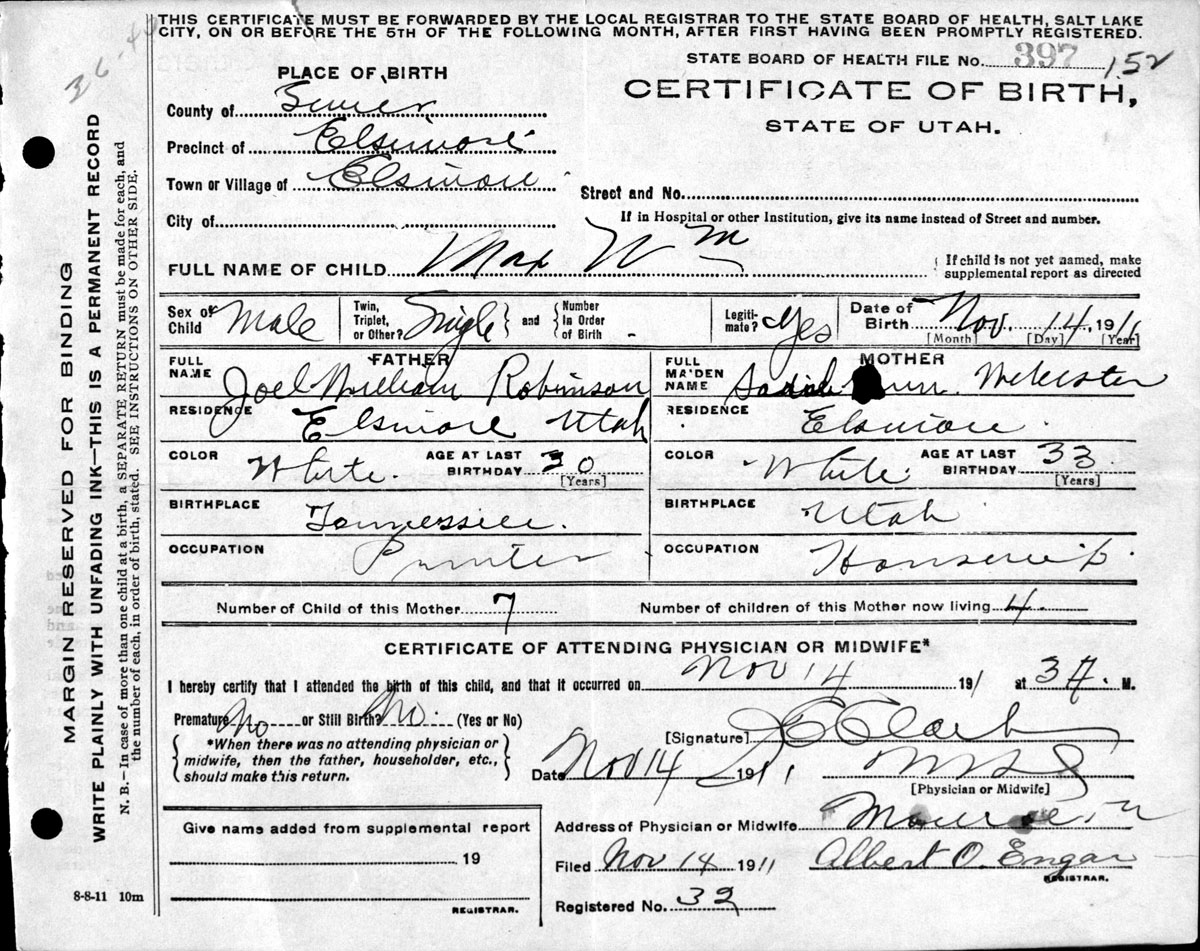 THIS CERTIFICATE MUST BE FORWARDED BY THE LOCAL REGISTRAR TO THE STATE BOARD OF HEALTH, SALT LAKE
CITY, ON OR BEFORE THE 5TH OF THE FOLLOWING MONTH, AFTER FIRST HAVING BEEN PROMPTLY REGISTERED.
STATE BOARD OF HEALTH FILE No. 397 152
PLACE OF BIRTH
CERTIFICATE OF BIRTH,
STATE OF UTAH.
County of Sevier
Precinct of Elsinore
Town or Village of Elsinore
Street and No.
City of
If in Hospital or other Institution, give its name instead of Street and number.
FULL NAME OF CHILD Max Wm
{ If child is not yet named, make
supplemental report as directed
Sex of Child Male
Twin, Triplet, or Other? Single } and { Number In Order of Birth -
Legitimate? Yes
Date of Birth Nov. 14 1911
[Month] [Day] [Year]
FATHER
FULL NAME Joel William Robinson
RESIDENCE Elsinore Utah
COLOR White AGE AT LAST BIRTHDAY 30 [Years]
BIRTHPLACE Tennessiee.
OCCUPATION Printer
MOTHER
FULL MAIDEN NAME Sadiah Webster
RESIDENCE Elsinore.
COLOR White. AGE AT LAST BIRTHDAY 33 [Years]
BIRTHPLACE Utah
OCCUPATION Housewife
Number of Child of this Mother 7 Number of children of this Mother now living 4
CERTIFICATE OF ATTENDING PHYSICIAN OR MIDWIFE*
I hereby certify that I attended the birth of this child, and that it occurred on Nov 14 191 at 3 A. M.
Premature No or Still Birth? No. (Yes or No)
{ *When there was no attending physician or
midwife, then the father, householder, etc.,
should make this return. }
[Signature] J C Clark
Date Nov 14 1911
[Physician or Midwife]
Give name added from supplemental report
19
REGISTRAR.
Address of Physician or Midwife Monroe
Filed Nov 14 1911 Albert O. Engar
REGISTRAR.
Registered No. 32
8-8-11 10m
MARGIN RESERVED FOR BINDING
WRITE PLAINLY WITH UNFADING INK—THIS IS A PERMANENT RECORD
N. B.—In case of more than one child at a birth, a SEPARATE RETURN must be made for each, and
the number of each, in order of birth, stated. SEE INSTRUCTIONS ON OTHER SIDE.